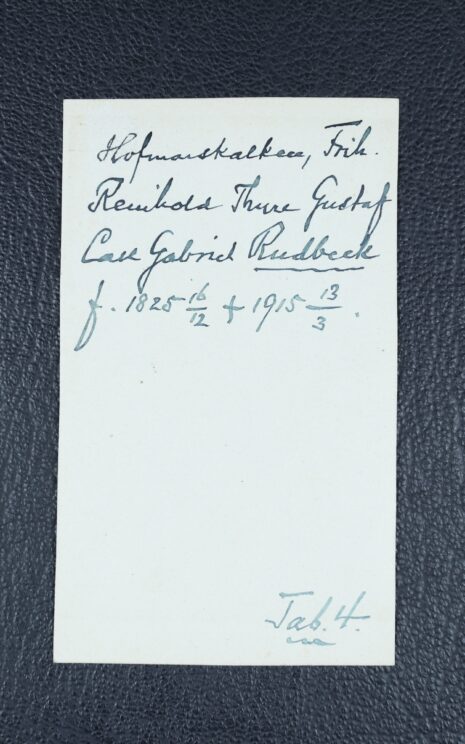 Hofmarskalken, Frih.
Reinhold Thure Gustaf
Carl Gabriel Rudbeck
f. 1825 16/12 + 1915 13/3.
Tab. 4.